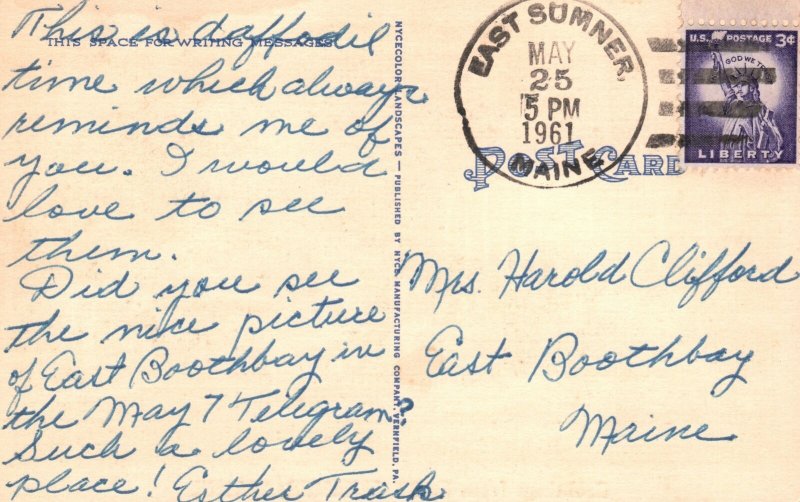 THIS SPACE FOR WRITING MESSAGES
This is daffodil
time which always
reminds me of
you. I would
love to see
them.
Did you see
the nice picture
of East Boothbay in
the May 7 Telegram?
Such a lovely
place! Esther Trask
NYCECOLOR LANDSCAPES — PUBLISHED BY NYCE MANUFACTURING COMPANY, VERNFIELD, PA.
EAST SUMNER,
MAY
25
5 PM
1961
MAINE
U.S. POSTAGE 3¢
LIBERTY
POST CARD
Mrs. Harold Clifford
East Boothbay
Maine